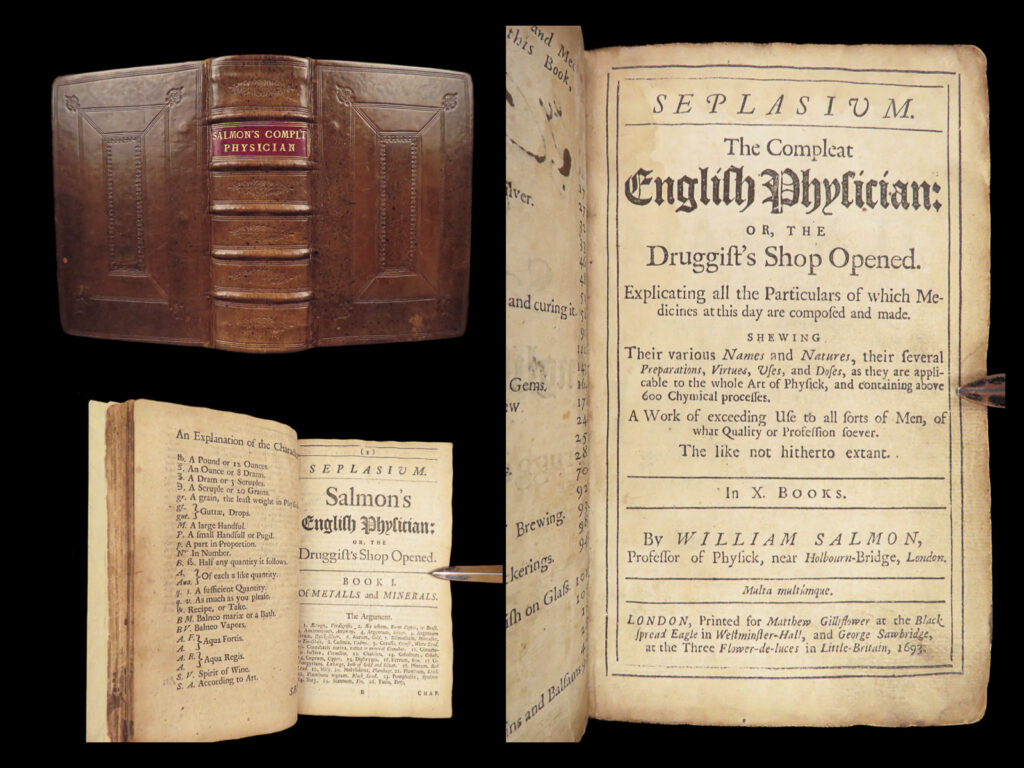 SALMON'S COMPLT
PHYSICIAN
An Explanation of the
℔. A Pound or 12 Ounces.
℥. An Ounce or 8 Drams.
ʒ. A Dram or 3 Scruples.
℈. A Scruple or 20 Grains.
gr. A grain, the least weight in
gt.
gut. } Guttæ, Drops.
M. A large Handful.
P. A small Handfull or Pugil.
p. A part in Proportion.
N° In Number.
B. ſs. Half any quantity it follows.
A.
Ana. } Of each a like quantity.
q. s. A ſufficient Quantity.
q. v. As much as you pleaſe.
℞. Recipe, or Take.
B M. Balneo mariæ or a Bath.
B V. Balneo Vapors.
A. F.
A. } Aqua Fortis.
A. R.
A. } Aqua Regis.
S. V. Spirit of Wine.
S. A. According to Art.
(1)
SEPLASIUM.
Salmon's
Engliſh Phyſician:
OR, THE
Druggiſt's Shop Opened.
BOOK I.
Of METALLS and MINERALS.
The Argument.
B CHAP.
and
this Book,
ilver.
and curing it.
Gems.
Brewing.
kerings.
iſh on Glaſs.
ins and Balſams,
SEPLASIUM.
The Compleat
Engliſh Phyſician:
OR, THE
Druggiſt's Shop Opened.
Explicating all the Particulars of which Me-
dicines at this day are compoſed and made.
SHEWING
Their various Names and Natures, their ſeveral
Preparations, Virtues, Uſes, and Doſes, as they are appli-
cable to the whole Art of Phyſick, and containing above
600 Chymical proceſſes.
A Work of exceeding Uſe to all ſorts of Men, of
what Quality or Profeſſion ſoever.
The like not hitherto extant.
In X. BOOKS.
By WILLIAM SALMON,
Profeſſor of Phyſick, near Holbourn-Bridge, London.
Multa multúmque.
LONDON, Printed for Matthew Gilliflower at the Black
ſpread Eagle in Weſtminſter-Hall, and George Sawbridge,
at the Three Flower-de-luces in Little-Britain, 1693.